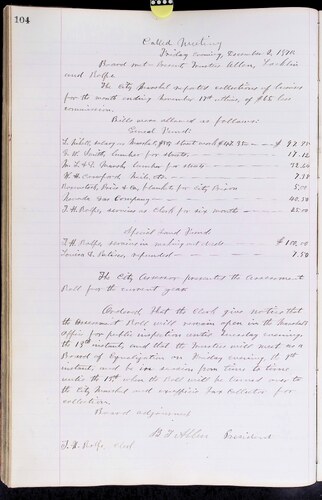 104
Called Meeting
Friday evening, December 2, 1870
Board met. Present Trustees Allen, Locklin
and Rolfe.
The City Marshal reported collections of licenses
for the month ending November 17th, of $65 less
commission.
Bills were allowed as follows:
General Fund:
salary as Marshal
G. K. Smith, lumber for streets 17.12
lumber for streets
W. H. Crawford 7.38
blankets for City Prison 5.00
Nevada Gas Company 40.50
T. H. Rolfe, services as Clerk for six months
Special Fund:
T. H. Rolfe, services in making out $100.00
refunded 7.50
The City Assessor presented the Assessment
Roll for the current year.
Ordered that the Clerk give notice that
the Assessment Roll will remain open in the
Office for public inspection until Tuesday evening
the 13th instant, and that the Trustees will meet as a
Board of Equalization on Friday evening, the 9th
instant, and be in session from time to time
until the 13th when the Roll will be turned over to
the City Marshal and ex officio Tax Collector for
collection.
Board adjourned.
Allen President
T. H. Rolfe, Clerk